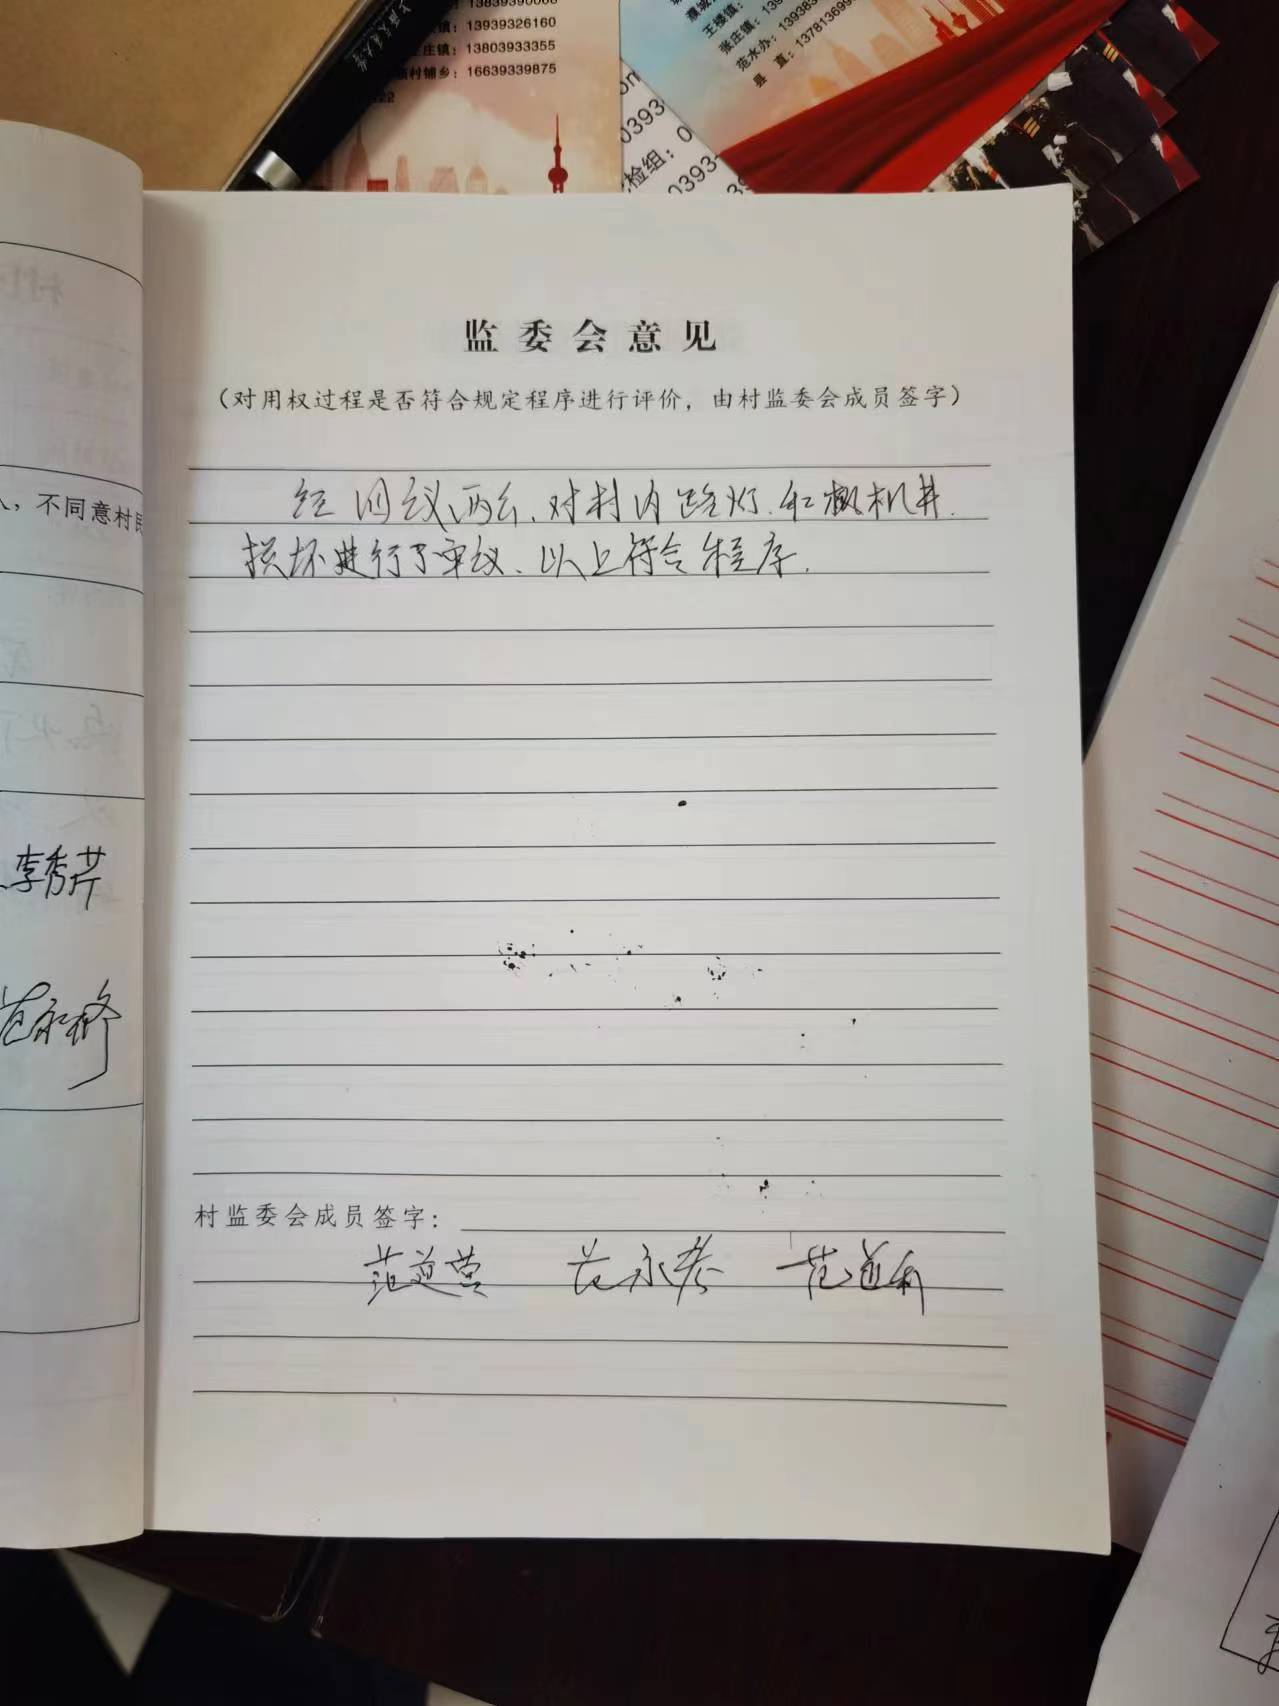 13839390066
镇：13939326160
庄镇：13803933355
村铺乡：16639339875
王楼镇：
张庄镇：
范水办：
县 直：
0393
检组：0
0393-
监委会意见
（对用权过程是否符合规定程序进行评价，由村监委会成员签字）
经四议两公、对村内路灯、和机井、
损坏进行了审议、以上符合程序.
，不同意村民
李秀芹
村监委会成员签字：
范道营 范永孝 范道利